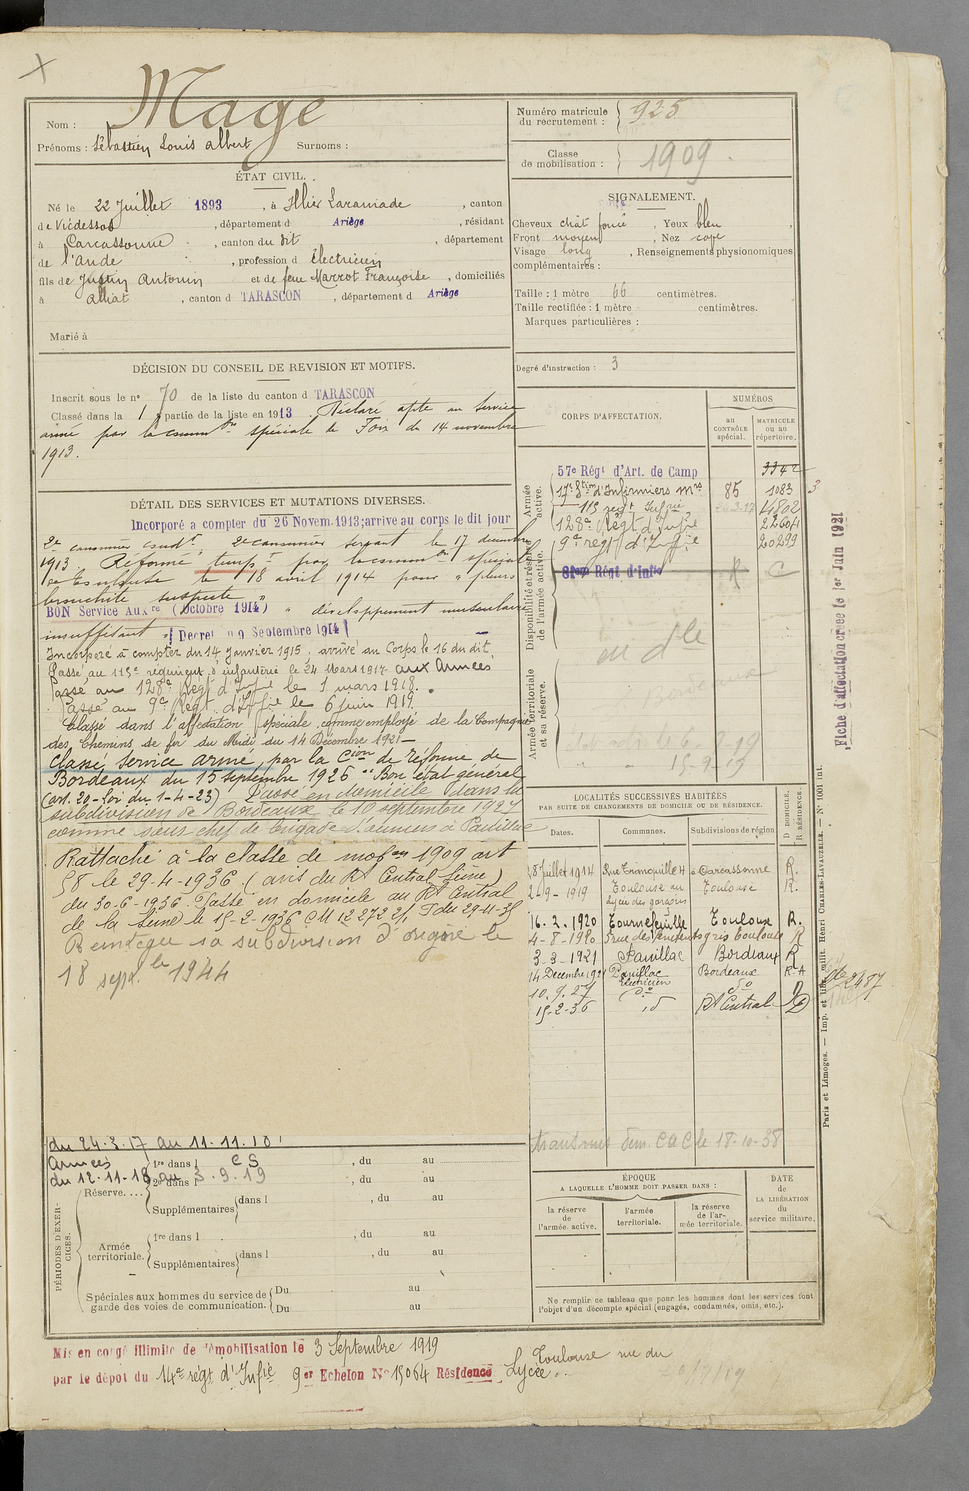 Mage
Nom :
Prénoms : Sébastien Louis Albert Surnoms :
ÉTAT CIVIL.
Né le 22 Juillet 1893, à Illier Laramade, canton
de Vicdessos, département d Ariège, résidant
à Carcassonne, canton du dit, département
de l'Aude, profession d électricien
fils de Justin Antonin et de feue Marrot Françoise, domiciliés
à Alliat, canton d TARASCON, département d Ariège
Marié à
Numéro matricule du recrutement : 925
Classe de mobilisation : 1909.
SIGNALEMENT.
Cheveux chât foncé, Yeux bleu,
Front moyen, Nez cave
Visage long, Renseignements physionomiques
complémentaires :
Taille : 1 mètre 66 centimètres.
Taille rectifiée : 1 mètre centimètres.
Marques particulières :
Degré d'instruction : 3
DÉCISION DU CONSEIL DE REVISION ET MOTIFS.
Inscrit sous le n° 70 de la liste du canton d TARASCON
Classé dans la 1 partie de la liste en 1913. Déclaré apte au service
armé par la common spéciale de Foix du 14 novembre
1913.
DÉTAIL DES SERVICES ET MUTATIONS DIVERSES.
Incorporé a compter du 26 Novem. 1913; arrive au corps le dit jour
2e canonnier 2e canonnier servant le 17 décembre
1913. Réformé tempre par la common spéciale
de Toulouse le 18 avril 1914 pour "pleuro
bronchite suspecte"
BON Service Auxre (Octobre 1914) " développement musculaire
insuffisant " Decret du 9 Septembre 1914
Incorporé à compter du 14 Janvier 1915, arrivé au Corps le 16 du dit.
Passé au 113e régiment d'infanterie le 24 Mars 1917 aux Armées
Passé au 128e Régt d'Infie le 1 mars 1918.
Passé au 9e Régt d'Iffie le 6 juin 1919.
Classé dans l'affectation spéciale comme employé de la Compagnie
des Chemins de fer du Midi du 14 Décembre 1921
Classé Service armé par la Cion de réforme de
Bordeaux du 15 septembre 1926 "Bon état général
(art. 20 - Loi du 1-4-23) Passé en domicile dans la
subdivision de Bordeaux le 10 septembre 1927
comme sous chef de brigade à Pauillac
Rattaché à la classe de mobon 1909 art
58 le 29-4-1936 (avis du Rt Central Seine)
du 30-6-1936. Passé en domicile au Rt Central
de la Seine le 15-2-1936
Réintègre sa subdivision d'origine le
18 sept. le 1944
CORPS D'AFFECTATION.
NUMÉROS
au CONTRÔLE spécial.
MATRICULE ou au répertoire.
Armée active.
57e Régt d'Art. de Camp 3342
17e Son d'Infirmiers Mres 85 1083
113 regt Infie 14802
128e Régt d'Infie 22604
9e regt d'Infie 20299
Disponibilité et réserve de l'armée active.
81eme Régt d'Infie R C
Armée territoriale et sa réserve.
Bordeaux
15-9-19
Fiche d'affectation créée le 1er Juin 1921
LOCALITÉS SUCCESSIVES HABITÉES
PAR SUITE DE CHANGEMENTS DE DOMICILE OU DE RÉSIDENCE.
Dates. Communes. Subdivisions de région. D DOMICILE. R RÉSIDENCE.
Juillet 1914 Rue Tranquille 4 Carcassonne R.
2-9-1919 Toulouse au Toulouse R.
lycée des garçons
16. 2. 1920 Tournefeuille Toulouse R.
4-8-1920 5 rue des Pénitents gris Toulouse R
3-3-1921 Pauillac Bordeaux R
14 Décembre 1921 Pauillac Bordeaux R.A
10. 9. 27 do do D
15-2-36 id Rt Central D
transmis 18-10-38
2487
du 24.3.17 au 11.11.18
Armées
du 12.11.18 au 3.9.19
PÉRIODES D'EXERCICES.
Réserve.... 1re dans l C S, du au
2e dans l, du au
Supplémentaires dans l, du au
Armée territoriale. 1re dans l, du au
Supplémentaires dans l, du au
Spéciales aux hommes du service de garde des voies de communication. Du au
Du au
ÉPOQUE
A LAQUELLE L'HOMME DOIT PASSER DANS :
la réserve de l'armée active.
l'armée territoriale.
la réserve de l'armée territoriale.
DATE de LA LIBÉRATION du service militaire.
Ne remplir ce tableau que pour les hommes dont les services font
l'objet d'un décompte spécial (engagés, condamnés, omis, etc.).
Paris et Limoges. — Imp. et lib. milit. Henri CHARLES-LAVAUZELLE. — N° 1001 int.
Mis en congé illimité de démobilisation le 3 Septembre 1919
par le dépôt du 14e régt d'Infie 9er Echelon N° 15064 Résidence Toulouse rue du
Lycée.